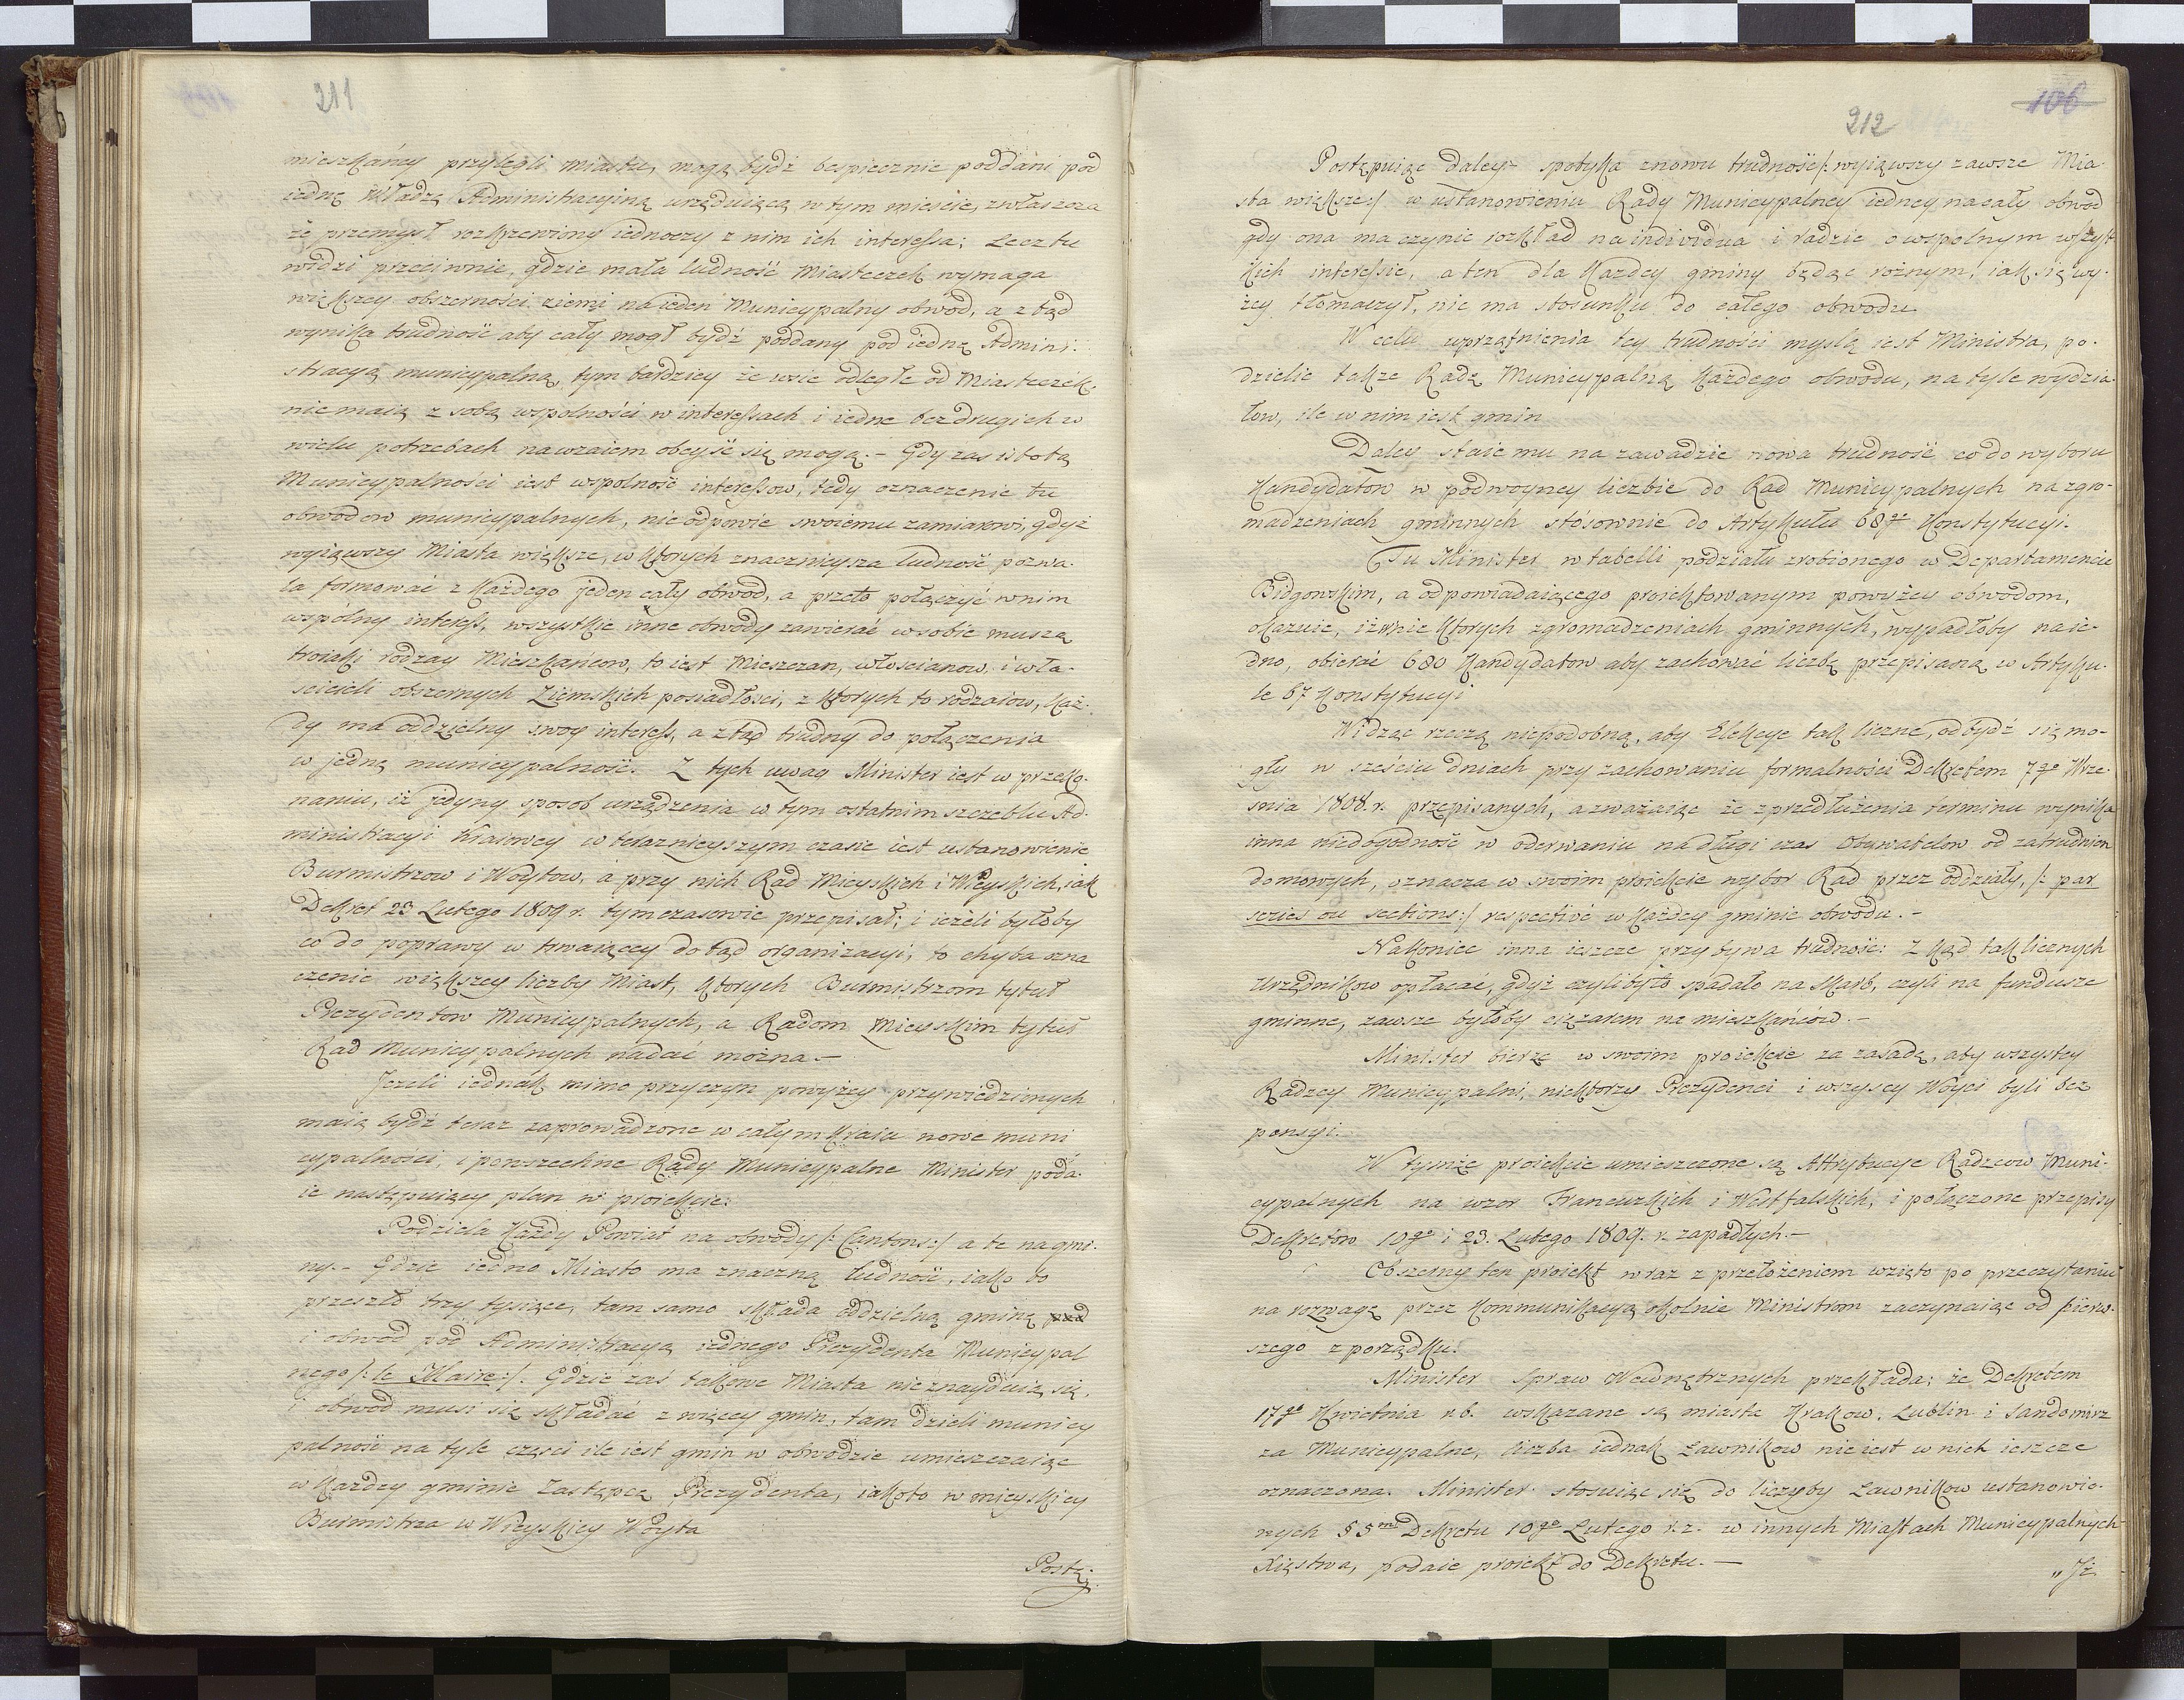 211
mieszkańcy przylegli miastu, mogą bydź bespiecznie poddani pod
iednę Władzę Administracyiną urzęduiącą w tym mieście, zwłaszcza
że przemysł rozkrzewiony iednoczy z nim ich interessa; Lecz tu
widzi przeciwnie, gdzie mała ludność Miasteczek wymaga
większey obszerności ziemi na ieden Municypalny obwod, a z tąd
wynika trudność aby cały mogł bydź poddany pod iednę Admini-
stracyą municypalną, tym bardziey że wsie odległe od Miasteczek
nie maią z sobą wspolności w interessach i iedne bez drugich w
wielu potrzebach nawzaiem obeyść się mogą.- Gdy zas istotą
Municypalności iest wspolność interessow, tedy oznaczenie tu
obwodow municypalnych, nie odpowie swoiemu zamiarowi, gdyż
wyiąwszy Miasta większe, w ktorych znacznieysza ludność pozwa-
la formować z każdego jeden cały obwod, a przeto połączyć w nim
wspólny interess, wszystkie inne obwody zawierać w sobie muszą
troiaki rodzay Mieszkańcow, to iest Mieszczan, włoscianow i wła-
scicieli obszernych Ziemskich posiadłości, z ktorych to rodzaiow, każ-
dy ma oddzielny swoy interess, a ztąd trudny do połączenia
w jedną municypalność. Z tych uwag Minister iest w przeko-
naniu, iż jedyny sposob urządzenia w tym ostatnim szczeblu Ad-
ministracyi kraiowey w teraznieyszym czasie iest ustanowienie
Burmistrzow i Woytow, a przy nich Rad Mieyskich i Wieyskich, iak
Dekret 23 Lutego 1809 r. tymczasowie przepisał; i ieżeli byłoby
co do poprawy w trwaiącey dotąd organizacyi, to chyba ozna
czenie większey liczby Miast, ktorych Burmistrzom tytuł
Prezydentow Municypalnych, a Radom Mieyskim tytuł
Rad Municypalnych nadać można.-
Jeżeli iednak mimo przyczyn powyżey przywiedzionych
maią bydź teraz zaprowadzone w całym kraiu nowe muni
cypalności, i powszechne Rady Municypalne Minister poda-
ie następuiący plan w proiekcie:
Podziela każdy Powiat na obwody /: Cantons:/ a te na gmi-
ny.- Gdzie iedno Miasto ma znaczną ludność, iako to
przeszło trzy tysiące, tam samo składa oddzielną gminę pod
i obwod pod Administracyą iednego Prezydenta Municypal
nego /: le Maire:/. Gdzie zaś takowe Miasta nie znayduią się,
i obwod musi się składać z więcey gmin, tam dzieli municy
palność na tyle części ile iest gmin w obwodzie umieszczaiąc
w każdey gminie Zastępcę Prezydenta, iakoto w mieyskiey
Burmistrza w Wieyskiey Woyta
Postę-
106
212
Postępuiąc daley- spotyka znowu trudność /: wyiąwszy zawsze Mia-
sta większe:/ w ustanowieniu Rady Municypalney iedney na cały obwod
gdy ona ma czynić rozkład na individua i radzić o wspolnym wszyst-
kich interessie, a ten dla każdey gminy będąc rożnym, iak się wy-
żey tłomaczył, nie ma stosunku do całego obwodu
W celu uprzątnienia tey trudności myslą iest Ministra, po-
dzielić także Radę Municypalną każdego obwodu, na tyle wydzia-
łow, ile w nim iest gmin
Daley staie mu na zawadzie nowa trudność co do wyboru
Kandydatow w podwoyney liczbie do Rad Municypalnych na zgro-
madzeniach gminnych stósownie do Artykułu 68go Konstytucyi.
Tu Minister w tabelli podziału zrobionego w Departamencie
Bidgowskim, a odpowiadaiącego proiektowanym powyżey obwodom,
okazuie, iż w niektorych zgromadzeniach gminnych, wypadłoby na ie-
dno, obierać 680 Kandydatow aby zachować liczbę przepisaną w Artyku-
le 67 Konstytucyi
Widząc rzeczą niepodobną, aby Elekcye tak liczne, odbydź się mo-
gły w sześciu dniach przy zachowaniu formalności Dekretem 7go Wrze-
snia 1808. r. przepisanych, a zważaiąc że z przedłużenia terminu wynika
inna niedogodność w oderwaniu na długi czas Obywatelow od zatrudnien
domowych, oznacza w swoim proiekcie wybor Rad przez oddziały, /: par
series ou sections:/ respectivé w każdey gminie obwodu.-
Nakoniec inna ieszcze przybywa trudność: Z kąd tak licznych
Urzędnikow opłacać, gdyż czyliby to spadało na Skarb, czyli na fundusze
gminne, zawsze byłoby ciężarem na mieszkańców.-
Minister bierze w swoim proiekcie za zasadę, aby wszyscy
Radzcy Municypalni, niektorzy Prezydenci i wszyscy Woyci byli bez
pensyi.
W tymże proiekcie umieszczone są Attrybucye Radzcow Muni-
cypalnych na wzor Francuzkich i Westfalskich, i połączone przepisy
Dekretów 10go i 23. Lutego 1809. r. zapadłych.-
Obszerny ten proiekt wraz z przełożeniem wzięto po przeczytaniu
na rozwagę przez kommunikacyą okolnie Ministrom zaczynaiąc od pierw-
szego z porządku.
Minister Spraw Wewnętrznych przekłada; że Dekretem
17go Kwietnia r.b. wskazane są miasta Krakow, Lublin i Sandomirz
za Municypalne, liczba iednak Ławnikow nie iest w nich ieszcze
oznaczona. Minister stosuiąc się do liczby Ławnikow ustanowio-
nych § 5m Dekretu 10go Lutego r.z. w innych Miastach Municypalnych
Xięstwa, podaie proiekt do Dekretu.-
„Iż